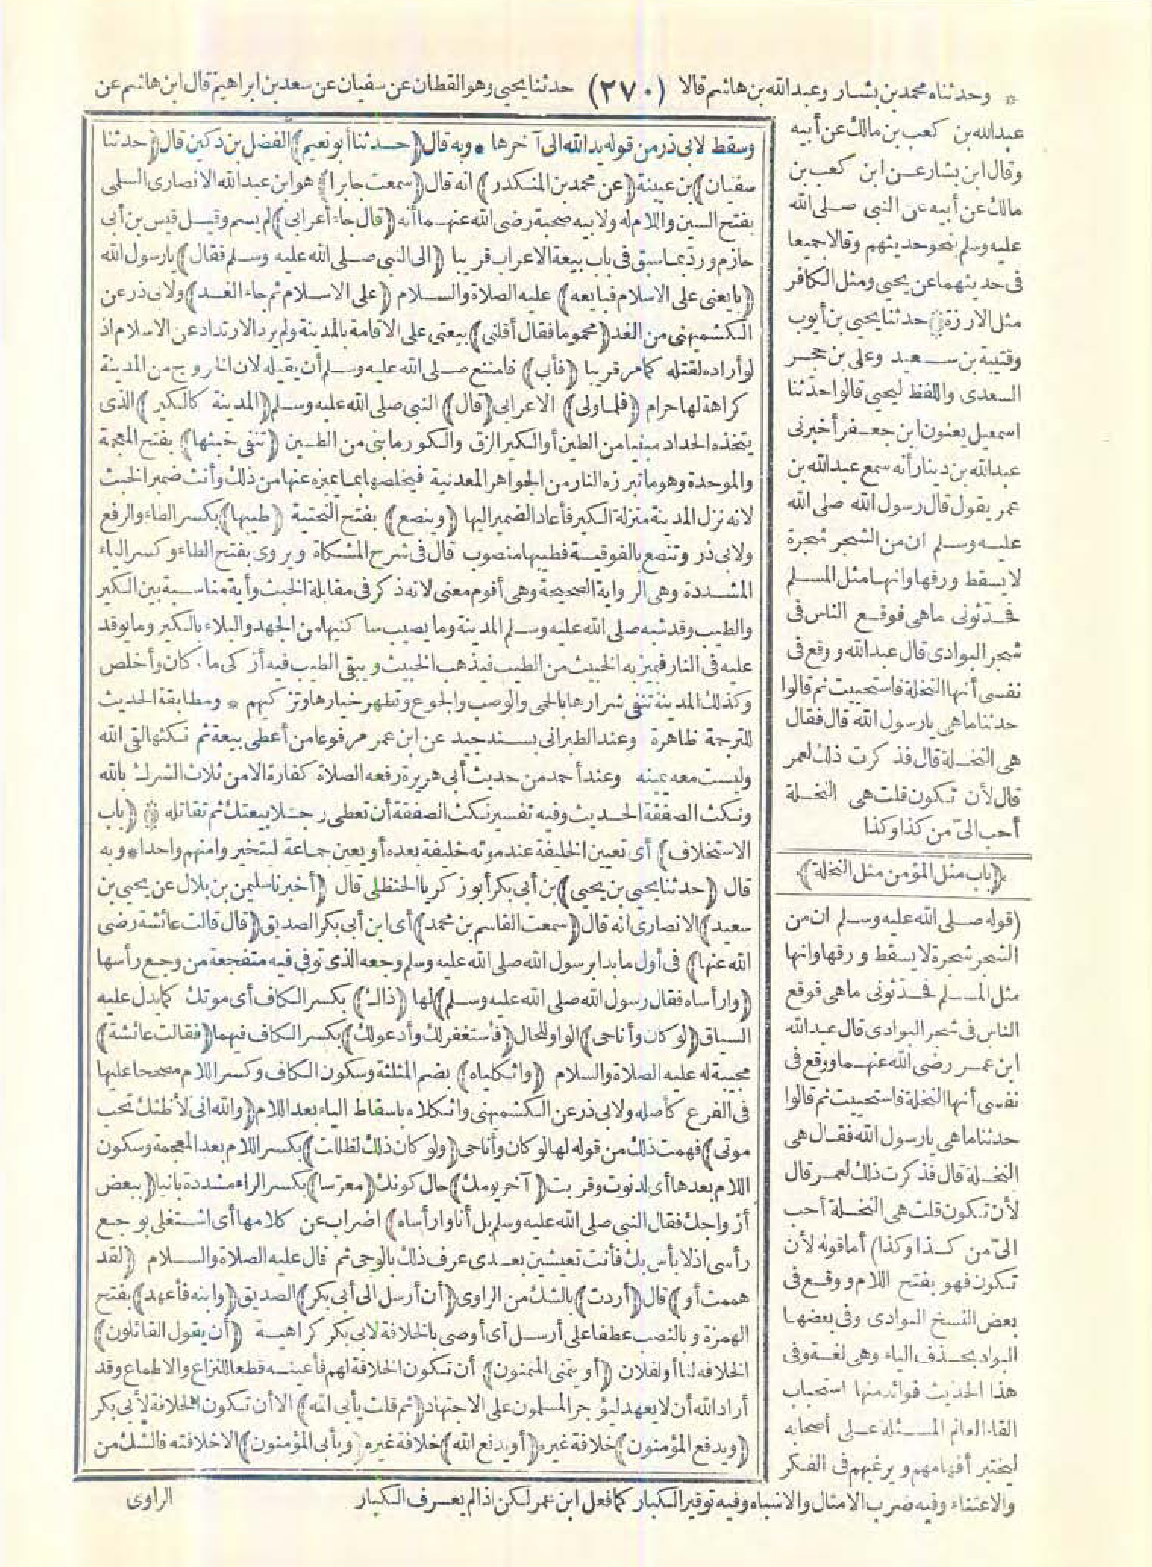 * وحدثناه محمد بن بشار وعبد الله بن هاشم قالا (٢٧٠) حدثنا يحيى وهو القطان عن سفيان عن سعد بن ابراهيم قال ابن هاشم عن
عبد الله بن كعب بن مالك عن أبيه
وقال ابن بشار عن ابن كعب بن
مالك عن أبيه عن النبي صلى الله
عليه وسلم بنحو حديثهم وقالا جميعا
فى حديثهما عن يحيى ومثل الكافر
مثل الارزة حدثنا يحيى بن أيوب
وقتيبة بن سعيد وعلى بن حجر
السعدى واللفظ ليحيى قالوا حدثنا
اسمعيل يعنون ابن جعفر أخبرنى
عبد الله بن دينار أنه سمع عبد الله بن
عمر يقول قال رسول الله صلى الله
عليه وسلم ان من الشجر شجرة
لا يسقط ورقها وانها مثل المسلم
فحدثونى ماهى فوقع الناس فى
شجر البوادى قال عبد الله ووقع فى
نفسى أنها النخلة فاستحييت ثم قالوا
حدثنا ماهى يا رسول الله قال فقال
هى النخلة قال فذكرت ذلك لعمر
قال لأن تكون قلت هى النخلة
أحب الىّ من كذا وكذا
(باب مثل المؤمن مثل النخلة)
(قوله صلى الله عليه وسلم ان من
الشجر شجرة لا يسقط ورقها وانها
مثل المسلم فحدثونى ماهى فوقع
الناس فى شجر البوادى قال عبد الله
ابن عمر رضى الله عنهما ووقع فى
نفسى أنها النخلة فاستحييت ثم قالوا
حدثنا ماهى يا رسول الله فقال هى
النخلة قال فذكرت ذلك لعمر قال
لأن تكون قلت هى النخلة أحب
الىّ من كذا وكذا) أما قوله لأن
تكون فهو بفتح اللام ووقع فى
بعض النسخ البوادى وفى بعضها
البواد بحذف الياء وهى لغة وفى
هذا الحديث فوائد منها استحباب
القاء العالم المسئلة على أصحابه
ليختبر أفهامهم ويرغبهم فى الفكر
والاعتناء وفيه ضرب الامثال والاشباه وفيه توقير الكبار كما فعل ابن عمر لكن اذا لم يعرف الكبار
وسقط لابى ذر من قوله يد الله الى آخرها * وبه قال (حدثنا أبو نعيم) الفضل بن دكين قال (حدثنا
سفيان) بن عيينة (عن محمد بن المنكدر) انه قال (سمعت جابرا) هو ابن عبد الله الانصارى السلمى
بفتح السين واللام له ولابيه صحبة رضى الله عنهما أنه (قال جاء أعرابى) لم يسم وقيل قيس بن أبى
حازم ورد بما سبق فى باب بيعة الاعراب قريبا (الى النبي صلى الله عليه وسلم فقال) يا رسول الله
(بايعنى على الاسلام فبايعه) عليه الصلاة والسلام (على الاسلام ثم جاء الغد) ولابى ذر عن
الكشميهنى من الغد (محموما فقال أقلنى) بيعتى على الاقامة بالمدينة ولم يرد الارتداد عن الاسلام اذ
لو أراده لقتله كما مر قريبا (فأبى) فامتنع صلى الله عليه وسلم أن يقيله لان الخروج من المدينة
كراهة لها حرام (فلما ولى) الاعرابى (قال) النبي صلى الله عليه وسلم (المدينة كالكير) الذى
يتخذه الحداد مبنيا من الطين أو الكير الزق والكور ما بنى من الطين (تنفى خبثها) بفتح المعجمة
والموحدة وهو ما تبرزه النار من الجواهر المعدنية فيخلصها بما يميزه عنها من ذلك وأنث ضمير الخبث
لانه نزل المدينة منزلة الكير فأعاد الضمير اليها (وينصع) بفتح التحتية (طيبها) بكسر الطاء والرفع
ولابى ذر وتنصع بالفوقية فطيبها منصوب قال فى شرح المشكاة ويروى بفتح الطاء وكسر الياء
المشددة وهى الرواية الصحيحة وهى أقوم معنى لانه ذكر فى مقابلة الخبث وأية مناسبة بين الكير
والطيب وقد شبه صلى الله عليه وسلم المدينة وما يصيب ساكنيها من الجهد والبلاء بالكير وما يوقد
عليه فى النار فيميز به الخبيث من الطيب فيذهب الخبيث ويبقى الطيب فيه أزكى ما كان وأخلص
وكذلك المدينة تنفى شرارها بالحمى والوصب والجوع وتطهر خيارها وتزكيهم * ومطابقة الحديث
للترجمة ظاهرة وعند الطبرانى بسند جيد عن ابن عمر مرفوعا من أعطى بيعة ثم نكثها لقى الله
وليست معه يمينه وعند أحمد من حديث أبى هريرة رفعه الصلاة كفارة الا من ثلاث الشرك بالله
ونكث الصفقة الحديث وفيه تفسير نكث الصفقة أن تعطى رجلا بيعتك ثم تقاتله (باب
الاستخلاف) أى تعيين الخليفة عند موته خليفة بعده أو يعين جماعة ليتخيروا منهم واحدا * وبه
قال (حدثنا يحيى بن يحيى) بن أبى بكر أبو زكريا الحنظلى قال (أخبرنا سليمن بن بلال عن يحيى بن
سعيد) الانصارى انه قال (سمعت القاسم بن محمد) أى ابن أبى بكر الصديق (قال قالت عائشة رضى
الله عنها) فى أول ما بدأ برسول الله صلى الله عليه وسلم وجعه الذى توفى فيه متفجعة من وجع رأسها
(وارأساه فقال رسول الله صلى الله عليه وسلم) لها (ذاك) بكسر الكاف أى موتك كما يدل عليه
السياق (لو كان وأنا حى) الواو للحال (فأستغفر لك وأدعو لك) بكسر الكاف فيهما (فقالت عائشة)
مجيبة له عليه الصلاة والسلام (واثكلياه) بضم المثلثة وسكون الكاف وكسر اللام مصححا عليها
فى الفرع كأصله ولابى ذر عن الكشميهنى واثكلاه باسقاط الياء بعد اللام (والله انى لأظنك تحب
موتى) فهمت ذلك من قوله لها لو كان وأنا حى (ولو كان ذلك لظللت) بكسر اللام بعد المعجمة وسكون
اللام بعدها أى لدنوت وقربت (آخر يومك) حال كونك (معرسا) بكسر الراء مشددة بانيا (ببعض
أزواجك فقال النبي صلى الله عليه وسلم بل أنا وارأساه) اضراب عن كلامها أى اشتغلى بوجع
رأسى اذ لا بأس بك فأنت تعيشين بعدى عرف ذلك بالوحى ثم قال عليه الصلاة والسلام (لقد
هممت أو) قال (أردت) بالشك من الراوى (أن أرسل الى أبى بكر) الصديق (وابنه فأعهد) بفتح
الهمزة وبالنصب عطفا على أرسل أى أوصى بالخلافة لابى بكر كراهية (أن يقول القائلون)
الخلافة لنا أو لفلان (أو يتمنى المتمنون) أن تكون الخلافة لهم فأعينه قطعا للنزاع والاطماع وقد
أراد الله أن لا يعهد ليؤجر المسلمون على الاجتهاد (ثم قلت يأبى الله) الا أن تكون الخلافة لأبى بكر
(ويدفع المؤمنون) خلافة غيره (أو يدفع الله) خلافة غيره (ويأبى المؤمنون) الا خلافته فالشك من
الراوى